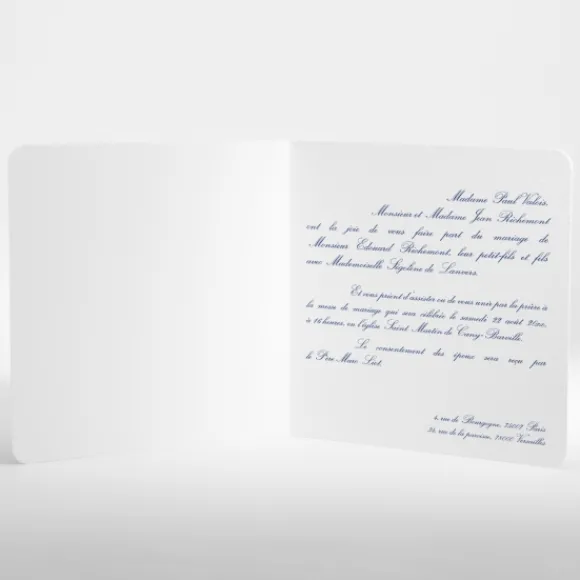 Madame Paul Valois,
Monsieur et Madame Jean Richemont
ont la joie de vous faire part du mariage de
Monsieur Edouard Richemont, leur petit-fils et fils
avec Mademoiselle Ségolène de Lanvers.
Et vous prient d'assister ou de vous unir par la prière à
la messe de mariage qui sera célébrée le samedi 22 août
à 16 heures, en l'église Saint Martin de Cany-Barville.
Le consentement des époux sera reçu par
le Père Marc Liot.
4, rue de Bourgogne, 75007 Paris
24, rue de la paroisse, 78000 Versailles